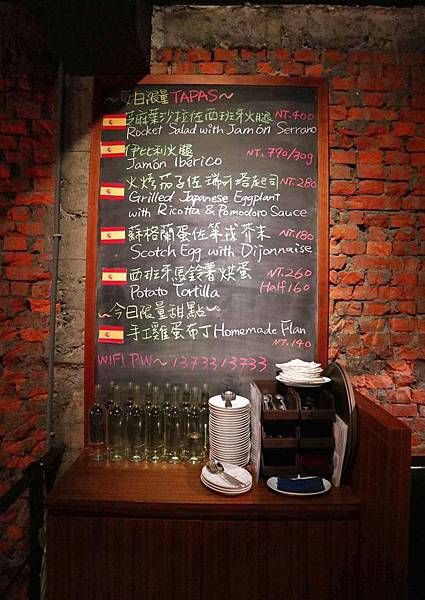 ～每日限量 TAPAS～
芝麻葉沙拉佐西班牙火腿 NT.400
Rocket Salad with Jamón Serrano
伊比利火腿 NT.790/30g
Jamón Ibérico
火烤茄子佐瑞可塔起司 NT.280
Grilled Japanese Eggplant
with Ricotta & Pomodoro Sauce
蘇格蘭蛋佐第戎芥末 NT.180
Scotch Egg with Dijonnaise
西班牙馬鈴薯烘蛋 NT.260
Potato Tortilla Half 160
～今日限量甜點～
手工雞蛋布丁 Homemade Flan
NT.140
WIFI PW～ 1373313733